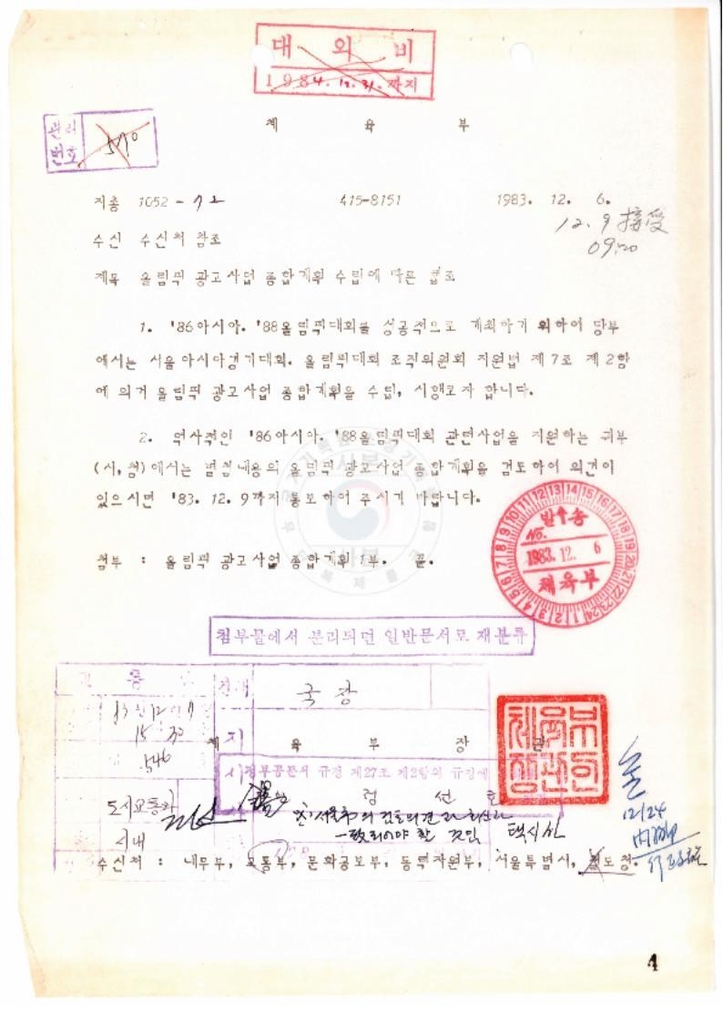 대 외 비
1984. 12. 31. 까지
분리
번호 570
체 육 부
지총 1052 - 72 415-8151 1983. 12. 6.
12. 9 接受
09:20
수신 수신처 참조
제목 올림픽 광고사업 종합계획 수립에 따른 협조
1. '86아시아. '88올림픽대회를 성공적으로 개최하기 위하여 당부
에서는 서울아시아경기대회. 올림픽대회 조직위원회 지원법 제7조 제2항
에 의거 올림픽 광고사업 종합계획을 수립, 시행코자 합니다.
2. 역사적인 '86아시아. '88올림픽대회 관련사업을 지원하는 귀부
(시,청)에서는 별첨내용의 올림픽 광고사업 종합계획을 검토하여 의견이
있으시면 '83. 12. 9까지 통보하여 주시기 바랍니다.
발송
1983.12. 6
체육부
첨부 : 올림픽 광고사업 종합계획 1부. 끝.
첨부물에서 분리되면 일반문서로 재분류
국장
15 30
546
체 육 부 장 관
정부공문서 규정 제27조 제2항의 규정에
도시교통과
시내
택시과
12/24
수신처 : 내무부, 교통부, 문화공보부, 동력자원부, 서울특별시, 철도청.
4